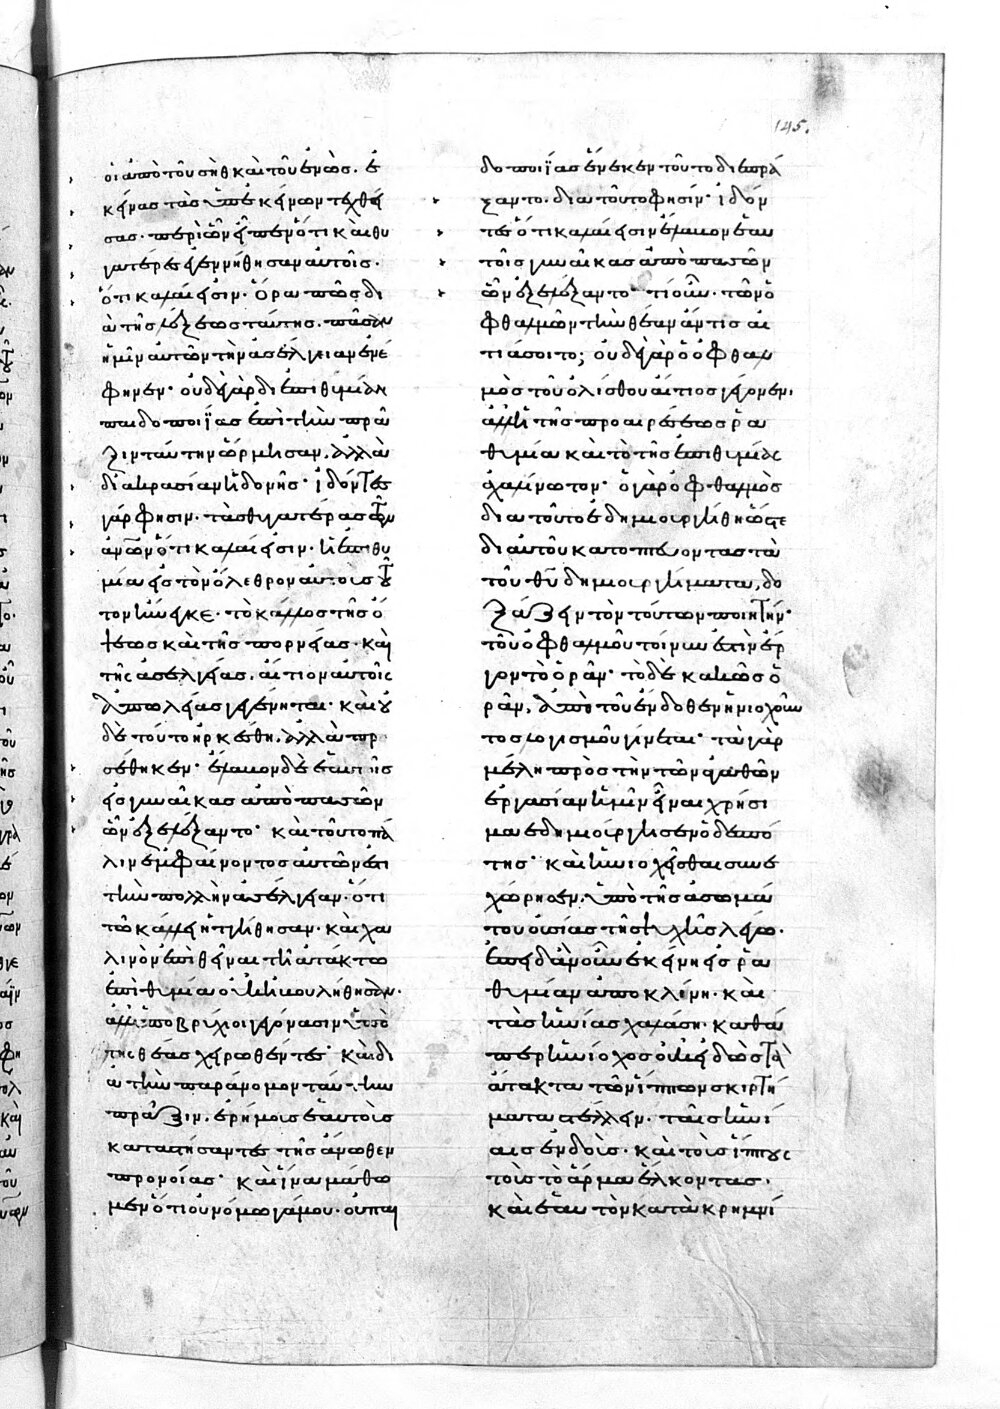 145.
οἱ ἀπὸ τοῦ σὴθ καὶ τοῦ ἐνὼς. ἐ
κείνας τὰς ὑπ' ἐκείνων τεχθεί
σας. περὶ ὧν εἶπεν ὅτι καὶ θυ
γατέρες ἐγεννήθησαν αὐτοῖς.
ὅτι καλαί εἰσιν. ὅρα πῶς δι
ὰ τῆς λέξεως ταύτης. πᾶσαν
ἡμῖν αὐτῶν τὴν ἀσέλγειαν ἐνέ
φηνεν· οὐδὲ γὰρ δι' ἐπιθυμίαν
παιδοποιΐας ἐπὶ τὴν πρᾶ
ξιν ταύτην ὥρμησαν. ἀλλὰ
δι' ἀκρασίαν ἡδονῆς· ἰδόντες
γάρ φησιν. τὰς θυγατέρας τῶν
ἀνων ὅτι καλαί εἰσιν. ἡ ἐπιθυ
μία εἰς τὸν ὄλεθρον αὐτοὺς τοῦ
τον ἤνεγκε. τὸ κάλλος τῆς ὄ
ψεως καὶ τῆς πορνείας. καὶ
τῆς ἀσελγείας. αἴτιον αὐτοῖς
ἀπωλείας γεγένηται· καὶ οὐ
δὲ τούτο ἠρκέσθη. ἀλλὰ προ
σέθηκεν· ἔλαβον δὲ ἑαυτοῖς
εἰς γυναῖκας ἀπὸ πασῶν
ὧν ἐξελέξαντο· καὶ τοῦτο πά
λιν ἐμφαίνοντος αὐτῶν ἐστι
τὴν πολλὴν ἀσέλγειαν. ὅτι
τῶ κάλλει ἡττήθησαν. καὶ χα
λινὸν ἐπιθεῖναι τῆ ἀτάκτω
ἐπιθυμία οὐκ ἠβουλήθησαν.
ἀλλ' ὑποβρύχιοι γεγόνασιν ὑπὸ
τῆς θέας χειρωθέντες· καὶ δι
ὰ τὴν παράνομον ταύτην
πρᾶξιν. ἐρήμους ἑαυτοὺς
καταστήσαντες τῆς ἄνωθεν
προνοίας· καὶ ἵνα μάθω
μεν ὅτι οὐ νόμω γάμου. οὐ παι
δοποιΐας ἕνεκεν τοῦτο διεπρά
ξαντο. διὰ τοῦτο φησίν· ἰδόν
τες ὅτι καλαί εἰσιν ἔλαβον ἑαυ
τοῖς γυναῖκας ἀπὸ πασῶν
ὧν ἐξελέξαντο· τί οὖν. τῶν ὀ
φθαλμῶν τὴν θέαν ἄν τις αἰ
τιάσοιτο; οὐδὲ γὰρ ὁ ὀφθαλ
μὸς τοῦ ὀλίσθου αἴτιος γέγονεν.
ἀλλ' ἡ τῆς προαιρέσεως ῥα
θυμία καὶ τὸ τῆς ἐπιθυμίας
ἀχαλίνωτον· ὁ γὰρ ὀφθαλμὸς
διὰ τοῦτο ἐδημιουργήθη ὥστε
δι' αὐτοῦ κατοπτεύοντας τὰ
τοῦ θυ δημιουργήματα, δο
ξάζειν τὸν τούτων ποιητήν·
τοῦ ὀφθαλμοῦ τοίνυν ἐστὶν ἔρ
γον τὸ ὁρᾶν· τὸ δὲ κακῶς ὁ
ρᾶν, ἀπὸ τοῦ ἔνδοθεν ἡνιοχοῦν
τος λογισμοῦ γίνεται· τὰ γὰρ
μέλη πρὸς τὴν τῶν ἀγαθῶν
ἐργασίαν ἡμῖν εἶναι χρήσι
μα ἐδημιούργησεν ὁ δεσπό
της· καὶ ἡνιοχεῖσθαι συνε
χώρησεν. ὑπὸ τῆς ἀσωμά
του οὐσίας τῆς ψυχῆς λέγω.
ἐπειδὰν οὖν ἐκείνη εἰς ῥα
θυμίαν ἀποκλίνη. καὶ
τὰς ἡνίας χαλάση. καθά
περ ἡνίοχος οὐκ εἰδὼς τὰ
ἄτακτα τῶν ἵππων σκιρτή
ματα στέλλειν. ταῖς ἡνί
αις ἐνδοὺς. καὶ τοὺς ἵππους
τοὺς τὸ ἅρμα ἕλκοντας.
καὶ ἑαυτὸν κατὰ κρημνῶ